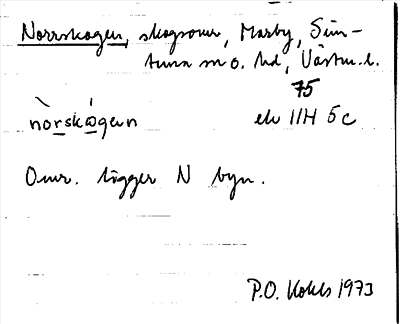 Norrskogen, skogsomr, Marby, Sim-
tuna sn o. hd, Västm. l.
75
nòrskǻgen ek 11H 5c
Omr. ligger N byn.
P.O. 1973